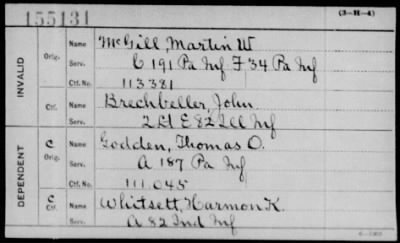 155131
(3-H-4)
INVALID
Orig.
Name McGill, Martin W
Serv. C 191 Pa Inf F 34 Pa Inf
Ctf. No. 113381
Ctf.
Name Brechbeller, John
Serv. 2 Lt E 82 Ill Inf
DEPENDENT
C
Orig.
Name Godden, Thomas O.
Serv. A 187 Pa Inf
Ctf. No. 111.045
C
Ctf.
Name Whitsett, Harmon K.
Serv. A 82 Ind Inf